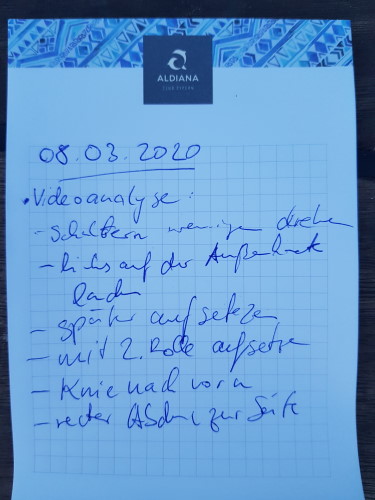 ALDIANA
CLUB
08.03.2020
• Videoanalyse:
- Schultern weniger drehen
- links auf der Außenkante
landen
- später aufsetzen
- mit 2. Rolle aufsetzen
- Knie nach vorn
- rechter zur Seite